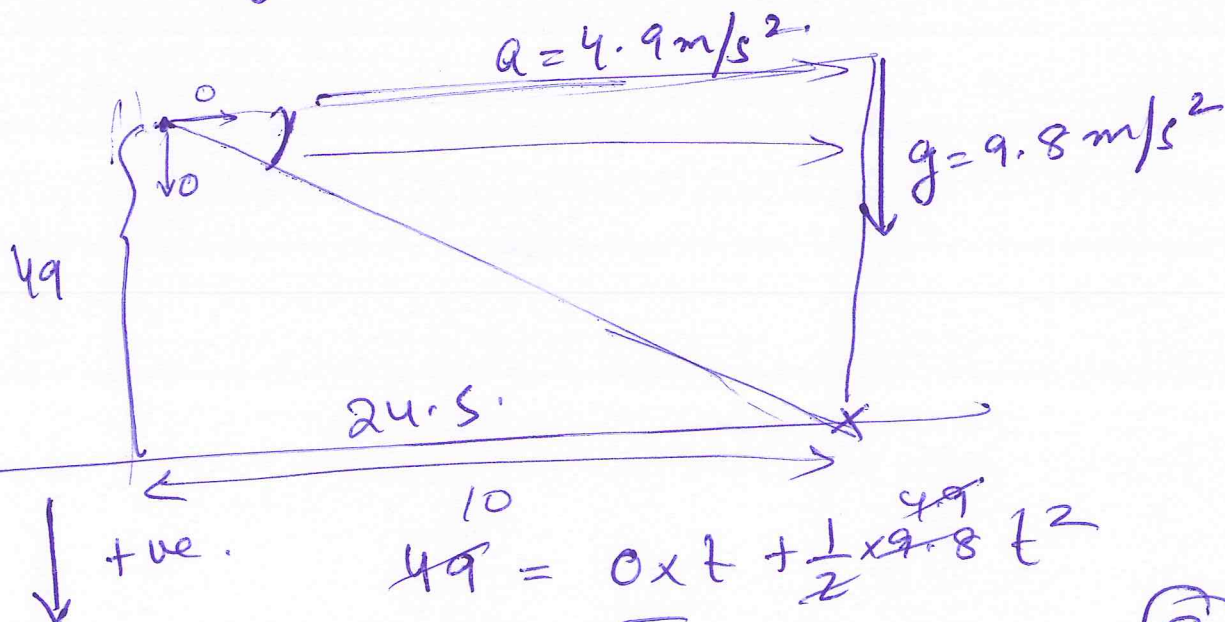 a = 4.9 m/s².
0
0
g = 9.8 m/s²
49
24.5.
+ve.
10 4.9
49 = 0 × t + 1/2 × 9.8 t²